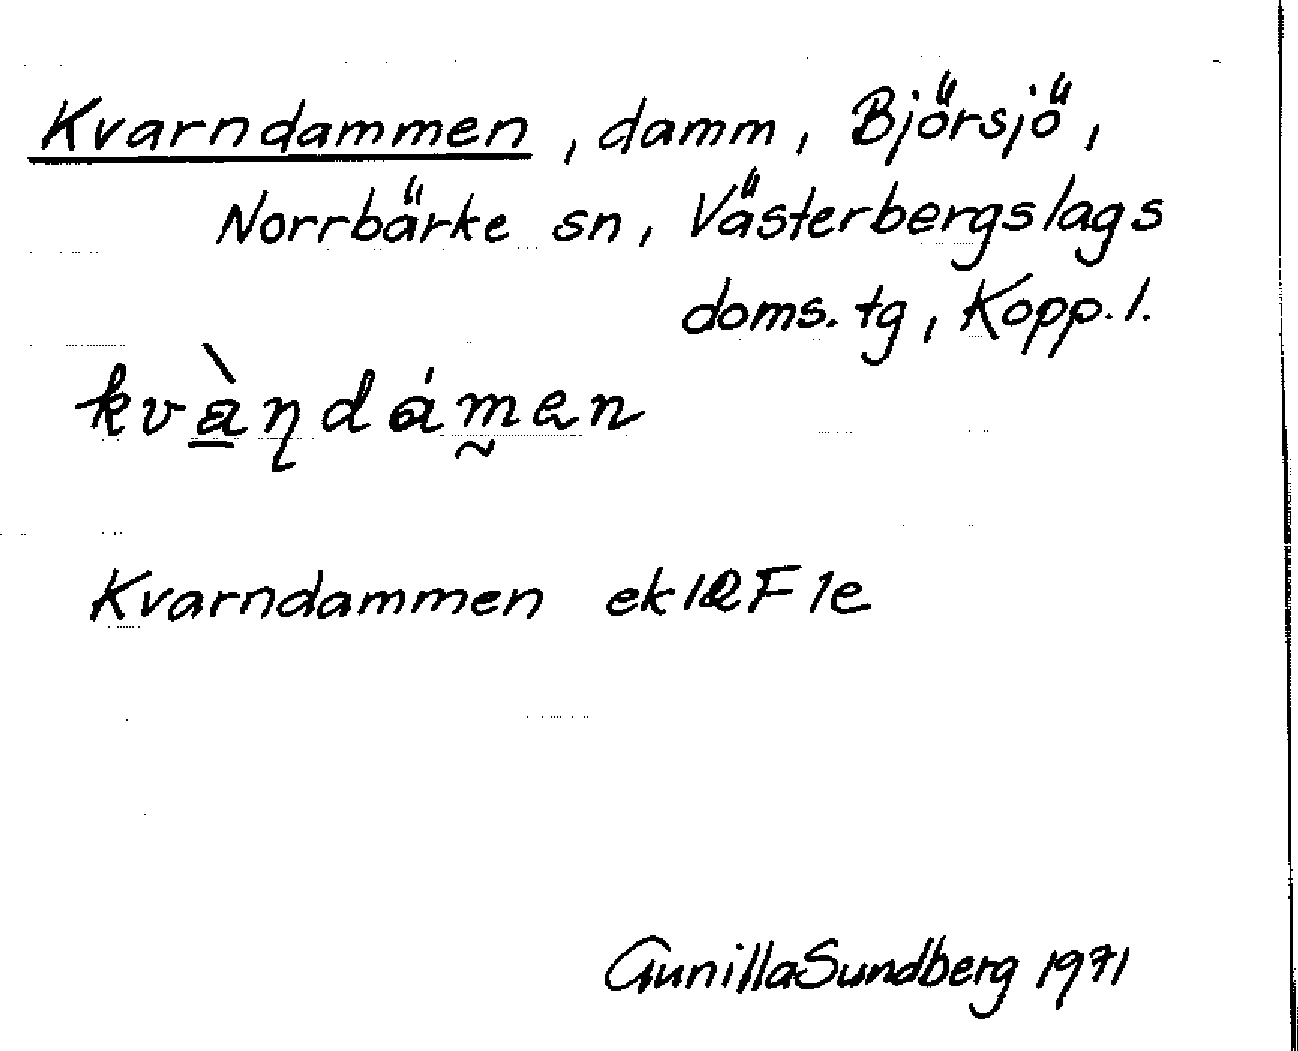 Kvarndammen, damm, Björsjö,
Norrbärke sn, Västerbergslags
doms. tg, Kopp. l.
kvàṇdámen
Kvarndammen ek 12F 1e
Gunilla Sundberg 1971